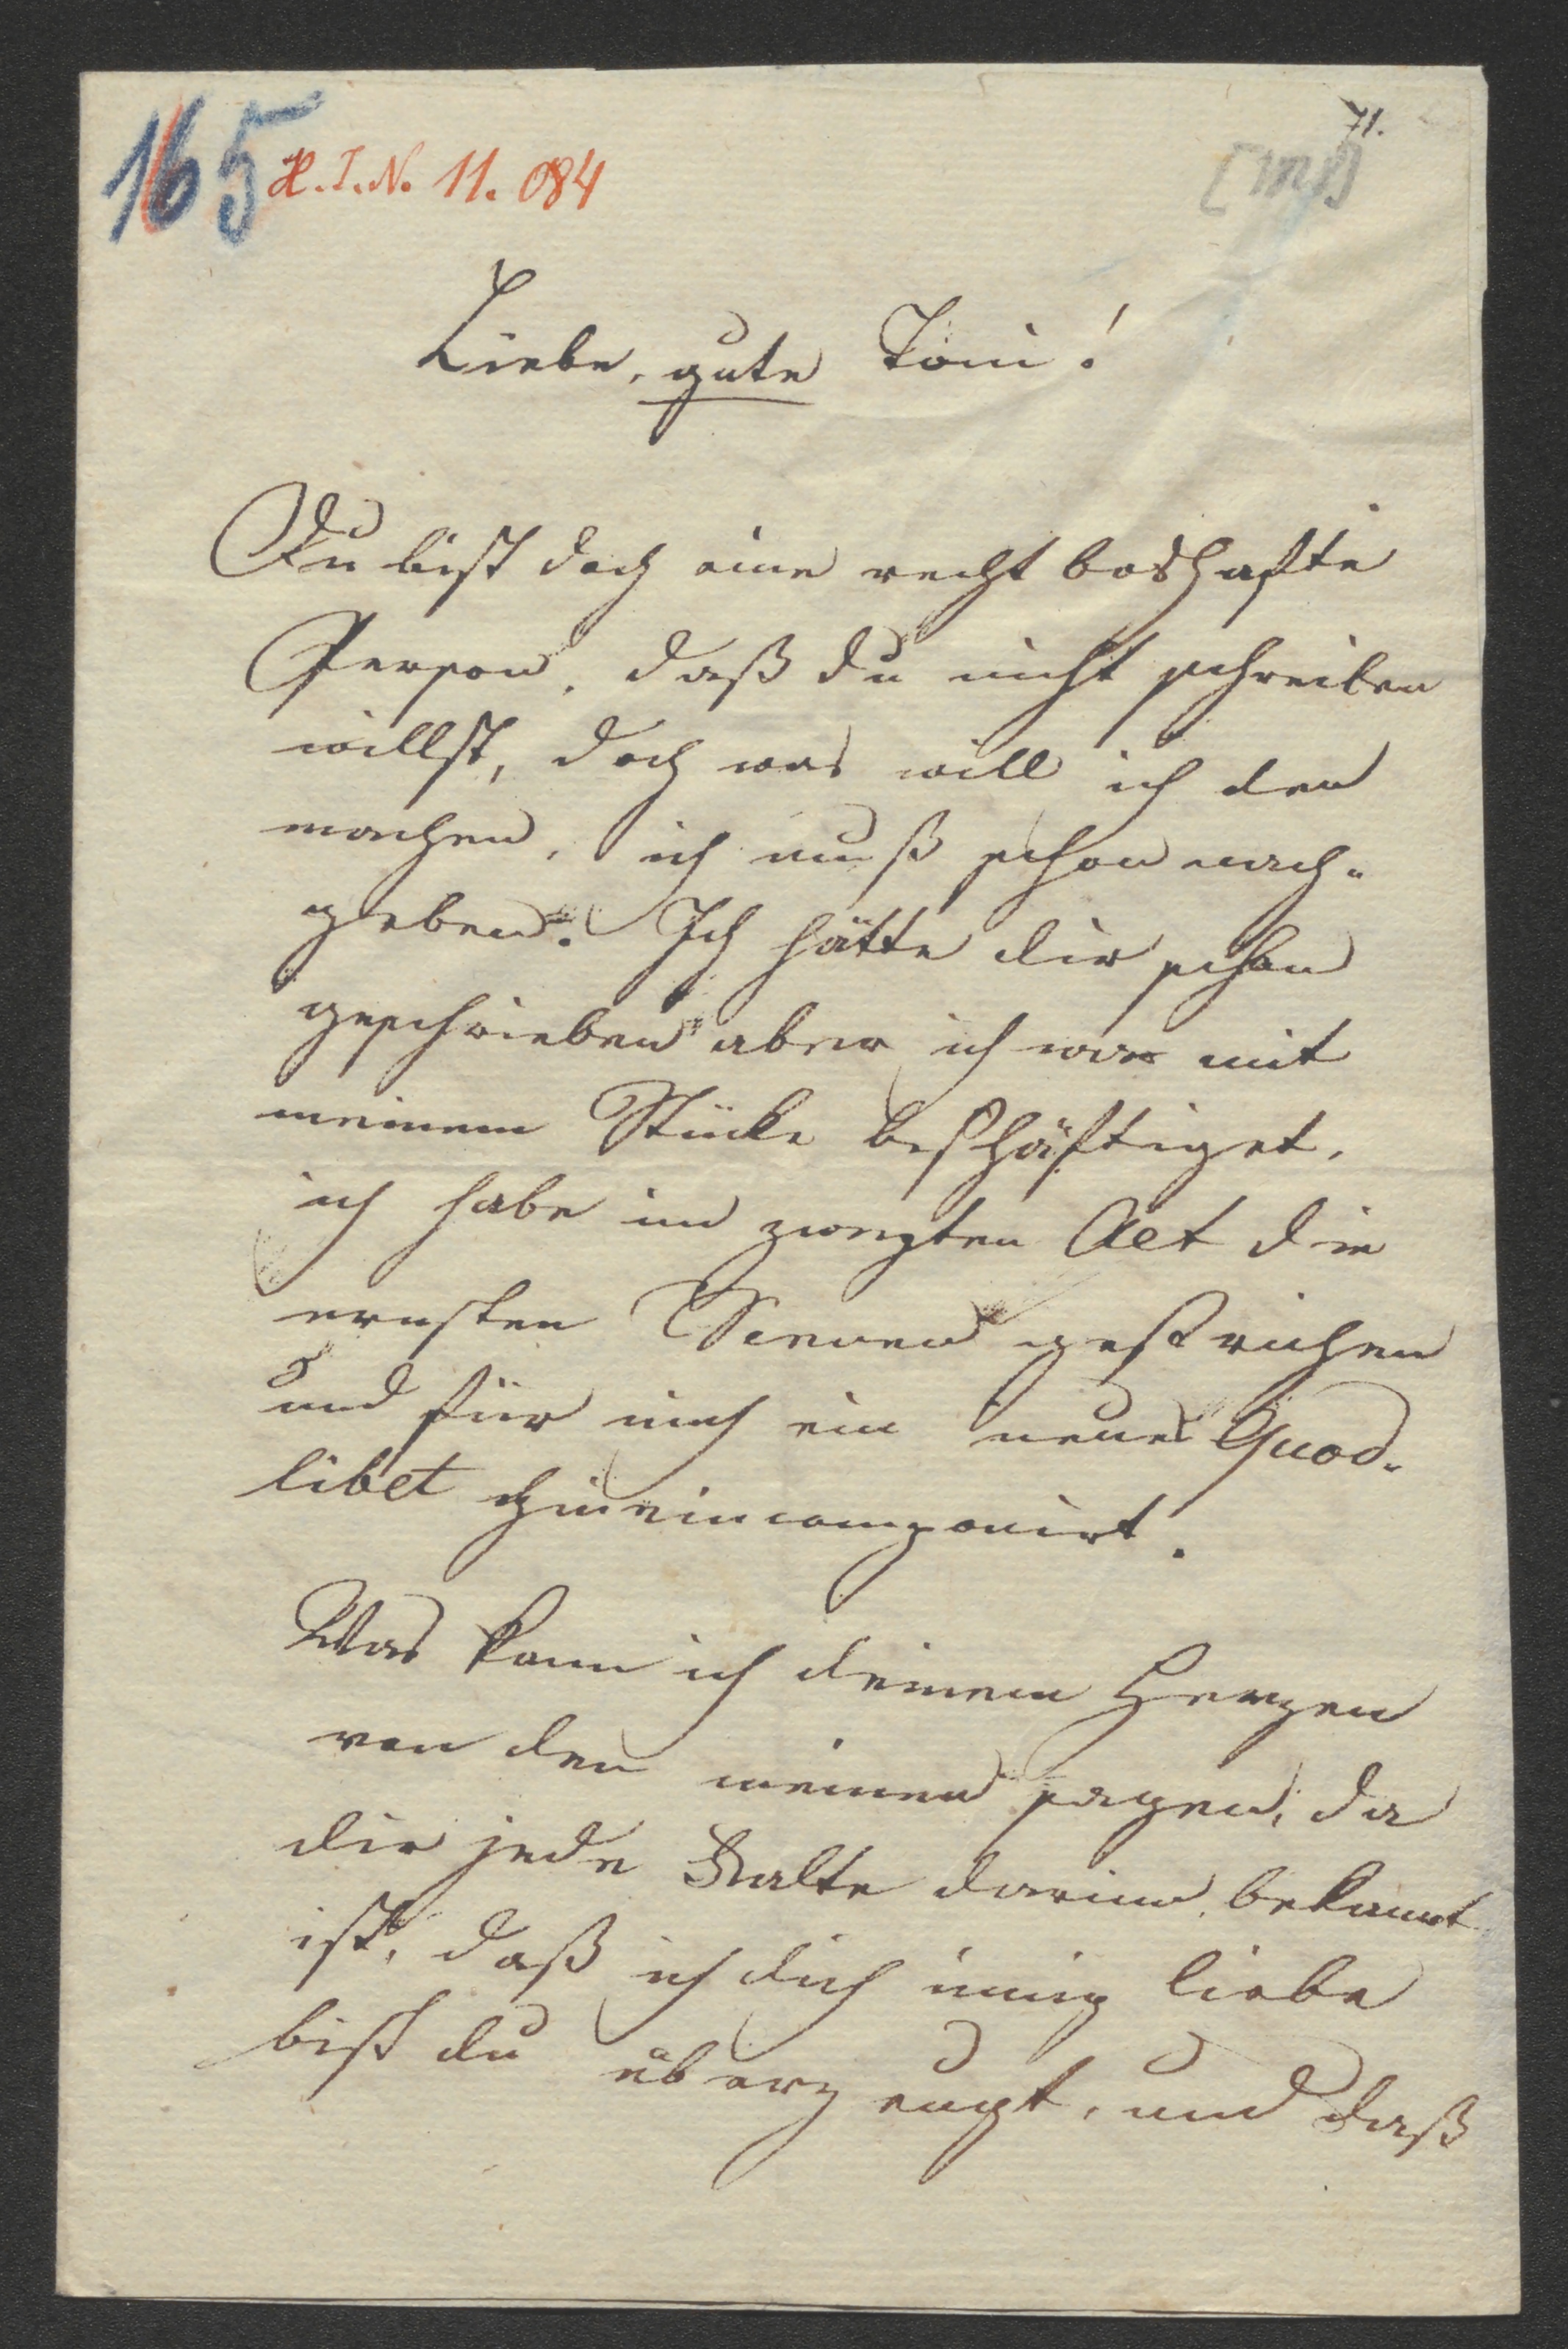 165 H.I.N. 11.084
71.
Liebe, gute Toni!
Du bist doch eine recht boshafte
Person, daß du nicht schreiben
willst, doch was will ich den
machen, ich muß schon nach-
geben. Ich hätte dir schon
geschrieben aber ich war mit
meinem Stücke beschäftiget,
ich habe im zweyten Act die
ernsten Scenen gestrichen
und für mich ein neues Quod-
libet hineincomponirt.
Was kann ich deinem Herzen
von den meinen sagen, da
dir jede Falte darinn bekannt
ist, daß ich dich innig liebe
bist du überzeugt, und daß